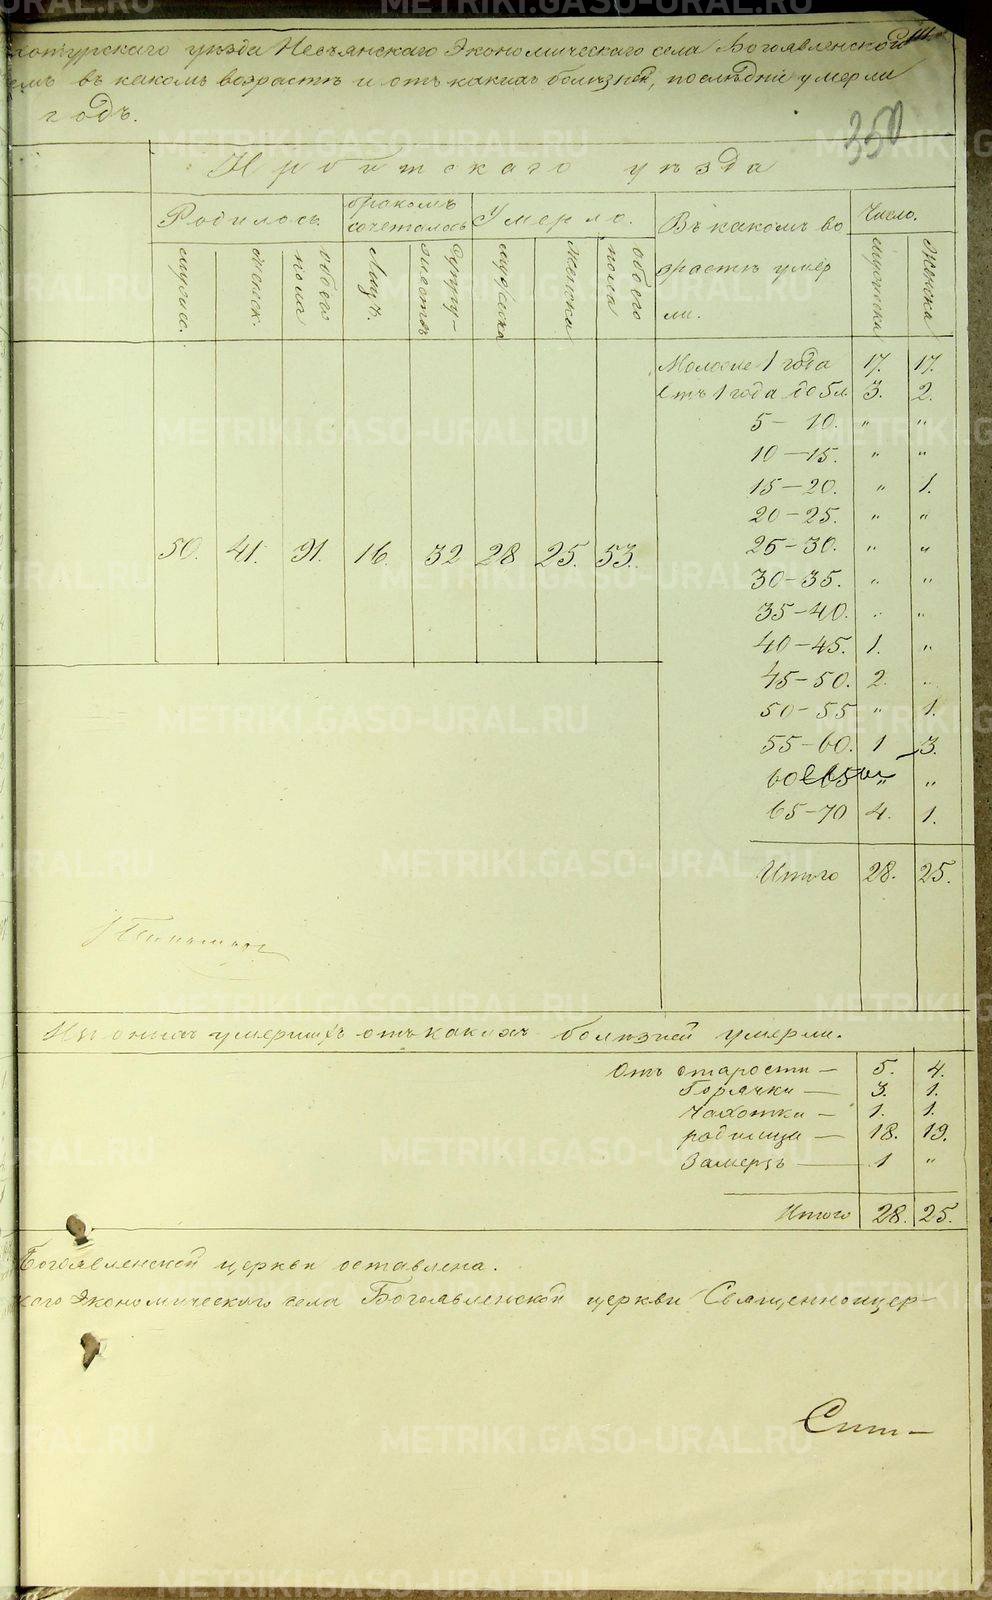 хотурскаго уезда Невьянскаго Экономическаго села Богоявленской
емъ въ какомъ возрастѣ и отъ какихъ болѣзней, послѣдніе умерли
годъ.
350
Ирбитскаго уезда
Родилось.
бракомъ сочеталось
Умерло.
Въ какомъ возрастѣ умерли.
Число.
мужеск.
женск.
обоего пола
Лицъ.
супружествъ
мужеска
женска
обоего пола
мужеска
женска
Моложе 1 года 17. 17.
Отъ 1 года до 5 л. 3. 2.
5 — 10. " "
10 — 15. " "
15 — 20. " 1.
20 — 25. " "
50. 41. 91. 16. 32 28 25. 53. 25 — 30. " "
30 — 35. " "
35 — 40. " "
40 — 45. 1. "
45 — 50. 2. "
50 — 55 " 1.
55 — 60. 1 3.
60 65 " "
65 — 70 4. 1.
Итого 28. 25.
Изъ оныхъ умершихъ отъ какихъ болѣзней умерли.
Отъ старости — 5. 4.
Горячки — 3. 1.
Чахотки — 1. 1.
родимца — 18. 19.
Замерзъ — 1 "
Итого 28. 25.
Богоявленской церкви оставлена.
каго Экономическаго села Богоявленской церкви Священноцер-
METRIKI.GASO-URAL.RU